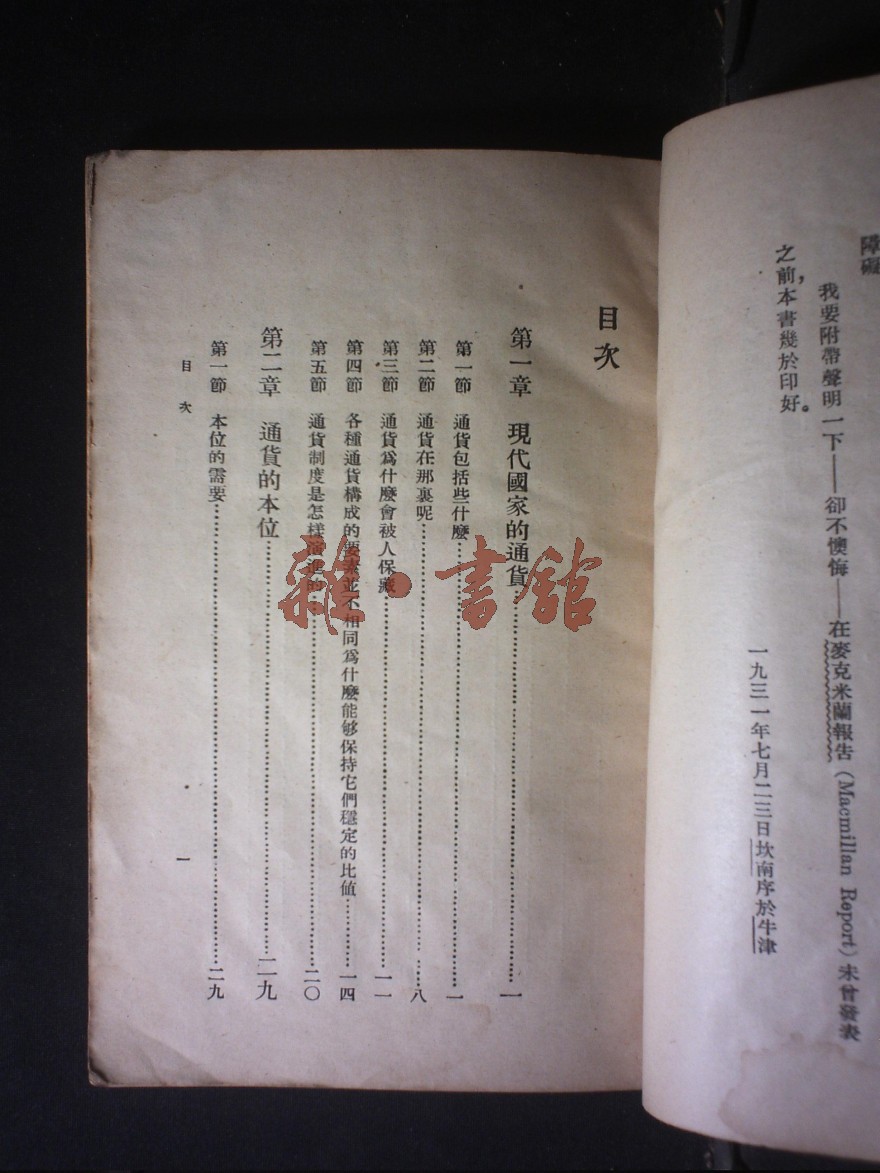 障礙
我要附帶聲明一下——卻不懊悔——在麥克米蘭報告（Macmillan Report）未曾發表
之前，本書幾於印好。
一九三一年七月二三日坎南序於牛津
目次
第一章 現代國家的通貨……一
第一節 通貨包括些什麼……一
第二節 通貨在那裏呢……八
第三節 通貨爲什麼會被人保藏……一一
第四節 各種通貨構成的要素並不相同爲什麼能够保持它們穩定的比値……一四
第五節 通貨制度是怎樣演進的……二〇
第二章 通貨的本位……二九
第一節 本位的需要……二九
目次 一
雜·書館